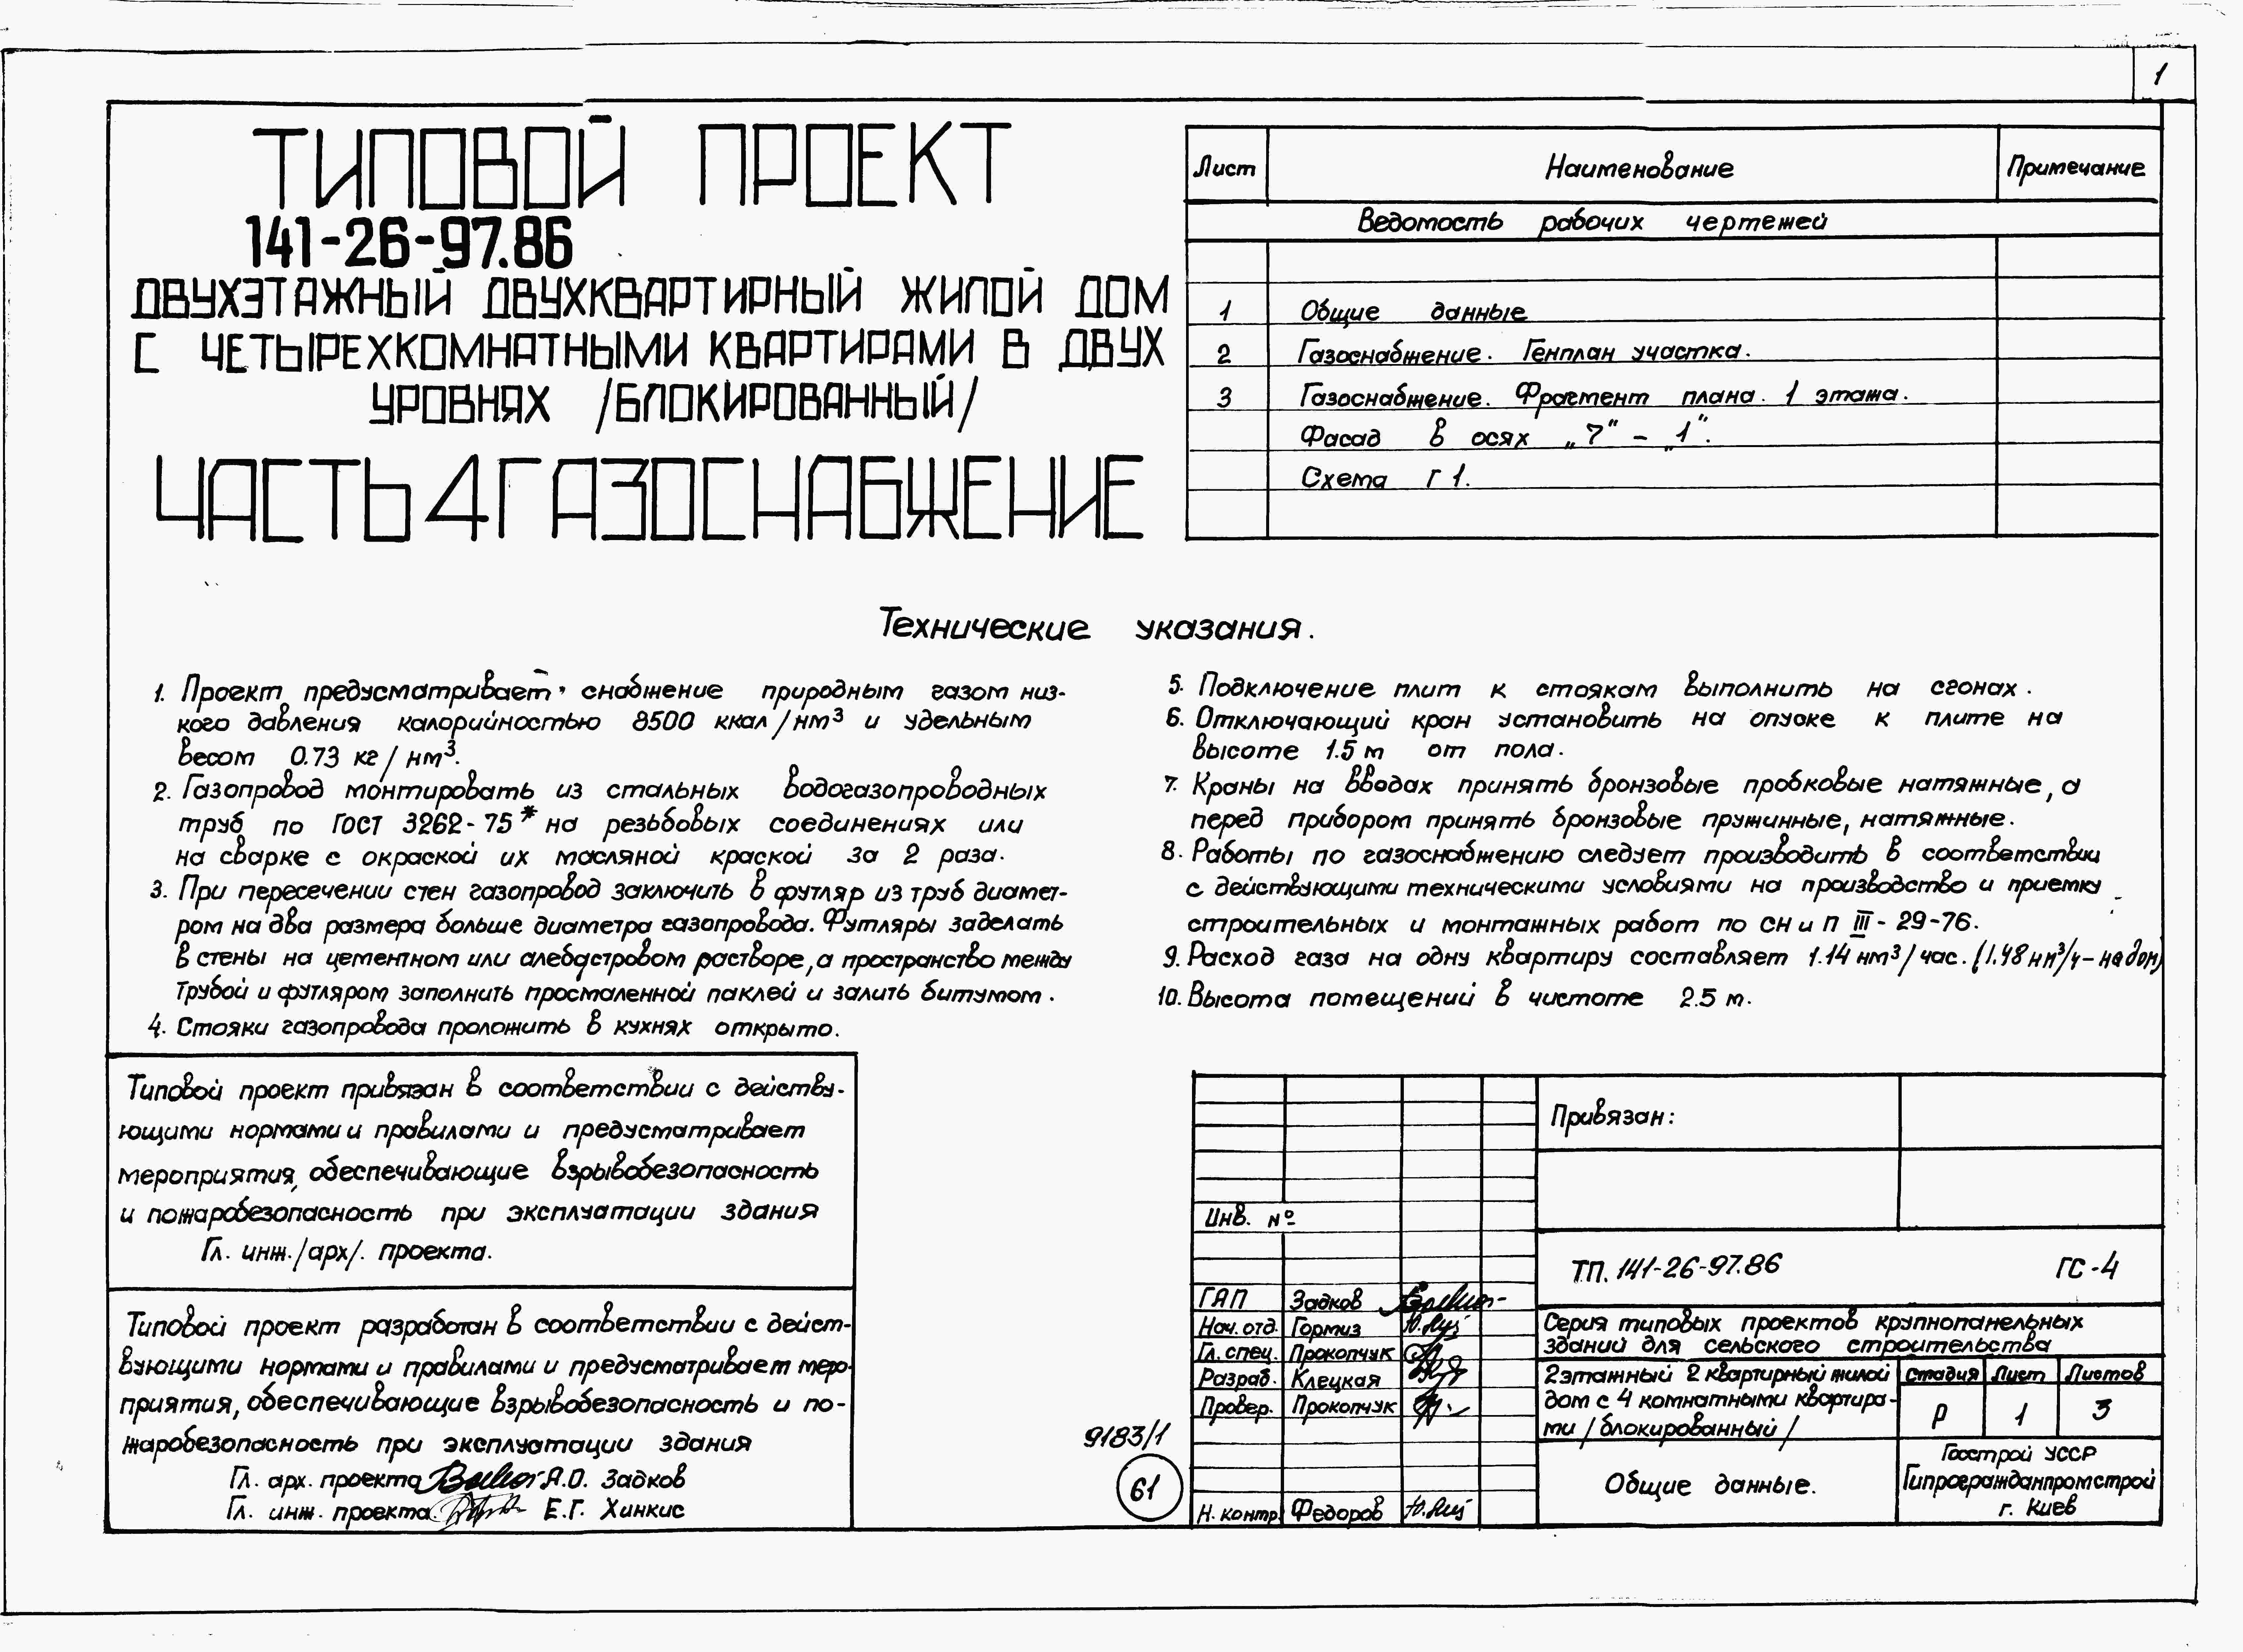 1
ТИПОВОЙ ПРОЕКТ
141-26-97.86
ДВУХЭТАЖНЫЙ ДВУХКВАРТИРНЫЙ ЖИЛОЙ ДОМ
С ЧЕТЫРЕХКОМНАТНЫМИ КВАРТИРАМИ В ДВУХ
УРОВНЯХ /БЛОКИРОВАННЫЙ/
ЧАСТЬ 4 ГАЗОСНАБЖЕНИЕ
Лист Наименование Примечание
Ведомость рабочих чертежей
1 Общие данные
2 Газоснабжение. Генплан участка.
3 Газоснабжение. Фрагмент плана. 1 этажа.
Фасад в осях „7" - „1".
Схема Г1.
Технические указания.
1. Проект предусматривает снабжение природным газом низ-
кого давления калорийностью 8500 ккал/нм³ и удельным
весом 0.73 кг/нм³.
2. Газопровод монтировать из стальных водогазопроводных
труб по ГОСТ 3262-75* на резьбовых соединениях или
на сварке с окраской их масляной краской за 2 раза.
3. При пересечении стен газопровод заключить в футляр из труб диамет-
ром на два размера больше диаметра газопровода. Футляры заделать
в стены на цементном или алебастровом растворе, а пространство между
трубой и футляром заполнить просмаленной паклей и залить битумом.
4. Стояки газопровода проложить в кухнях открыто.
5. Подключение плит к стоякам выполнить на сгонах.
6. Отключающий кран установить на опуске к плите на
высоте 1.5 м от пола.
7. Краны на вводах принять бронзовые пробковые натяжные, а
перед прибором принять бронзовые пружинные, натяжные.
8. Работы по газоснабжению следует производить в соответствии
с действующими техническими условиями на производство и приемку
строительных и монтажных работ по СН и П III-29-76.
9. Расход газа на одну квартиру составляет 1.14 нм³/час. (1.48 нм³/ч - на дом)
10. Высота помещений в чистоте 2.5 м.
Типовой проект привязан в соответствии с действу-
ющими нормами и правилами и предусматривает
мероприятия, обеспечивающие взрывобезопасность
и пожаробезопасность при эксплуатации здания
Гл. инж./арх/. проекта.
Типовой проект разработан в соответствии с дейст-
вующими нормами и правилами и предусматривает меро-
приятия, обеспечивающие взрывобезопасность и по-
жаробезопасность при эксплуатации здания
Гл. арх. проекта А.О. Задков
Гл. инж. проекта. Е.Г. Хинкис
9183/1
61
Привязан:
Инв. №
ТП. 141-26-97.86 ГС-4
ГАП Задков
Нач. отд. Гортиз
Гл. спец. Прокопчук
Разраб. Клецкая
Провер. Прокопчук
Н. контр. Федоров
Серия типовых проектов крупнопанельных
зданий для сельского строительства
2этажный 2 квартирный жилой
дом с 4 комнатными квартира-
ми /блокированный/
Стадия Лист Листов
Р 1 3
Общие данные.
Госстрой УССР
Гипрогражданпромстрой
г. Киев